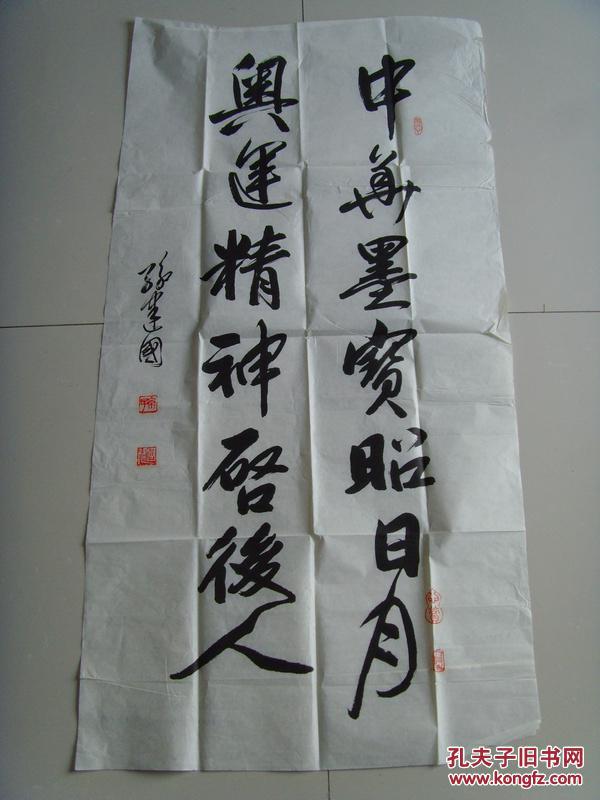 中華墨寶昭日月
奧運精神啓後人
孫建國
孔夫子旧书网
www.kongfz.com